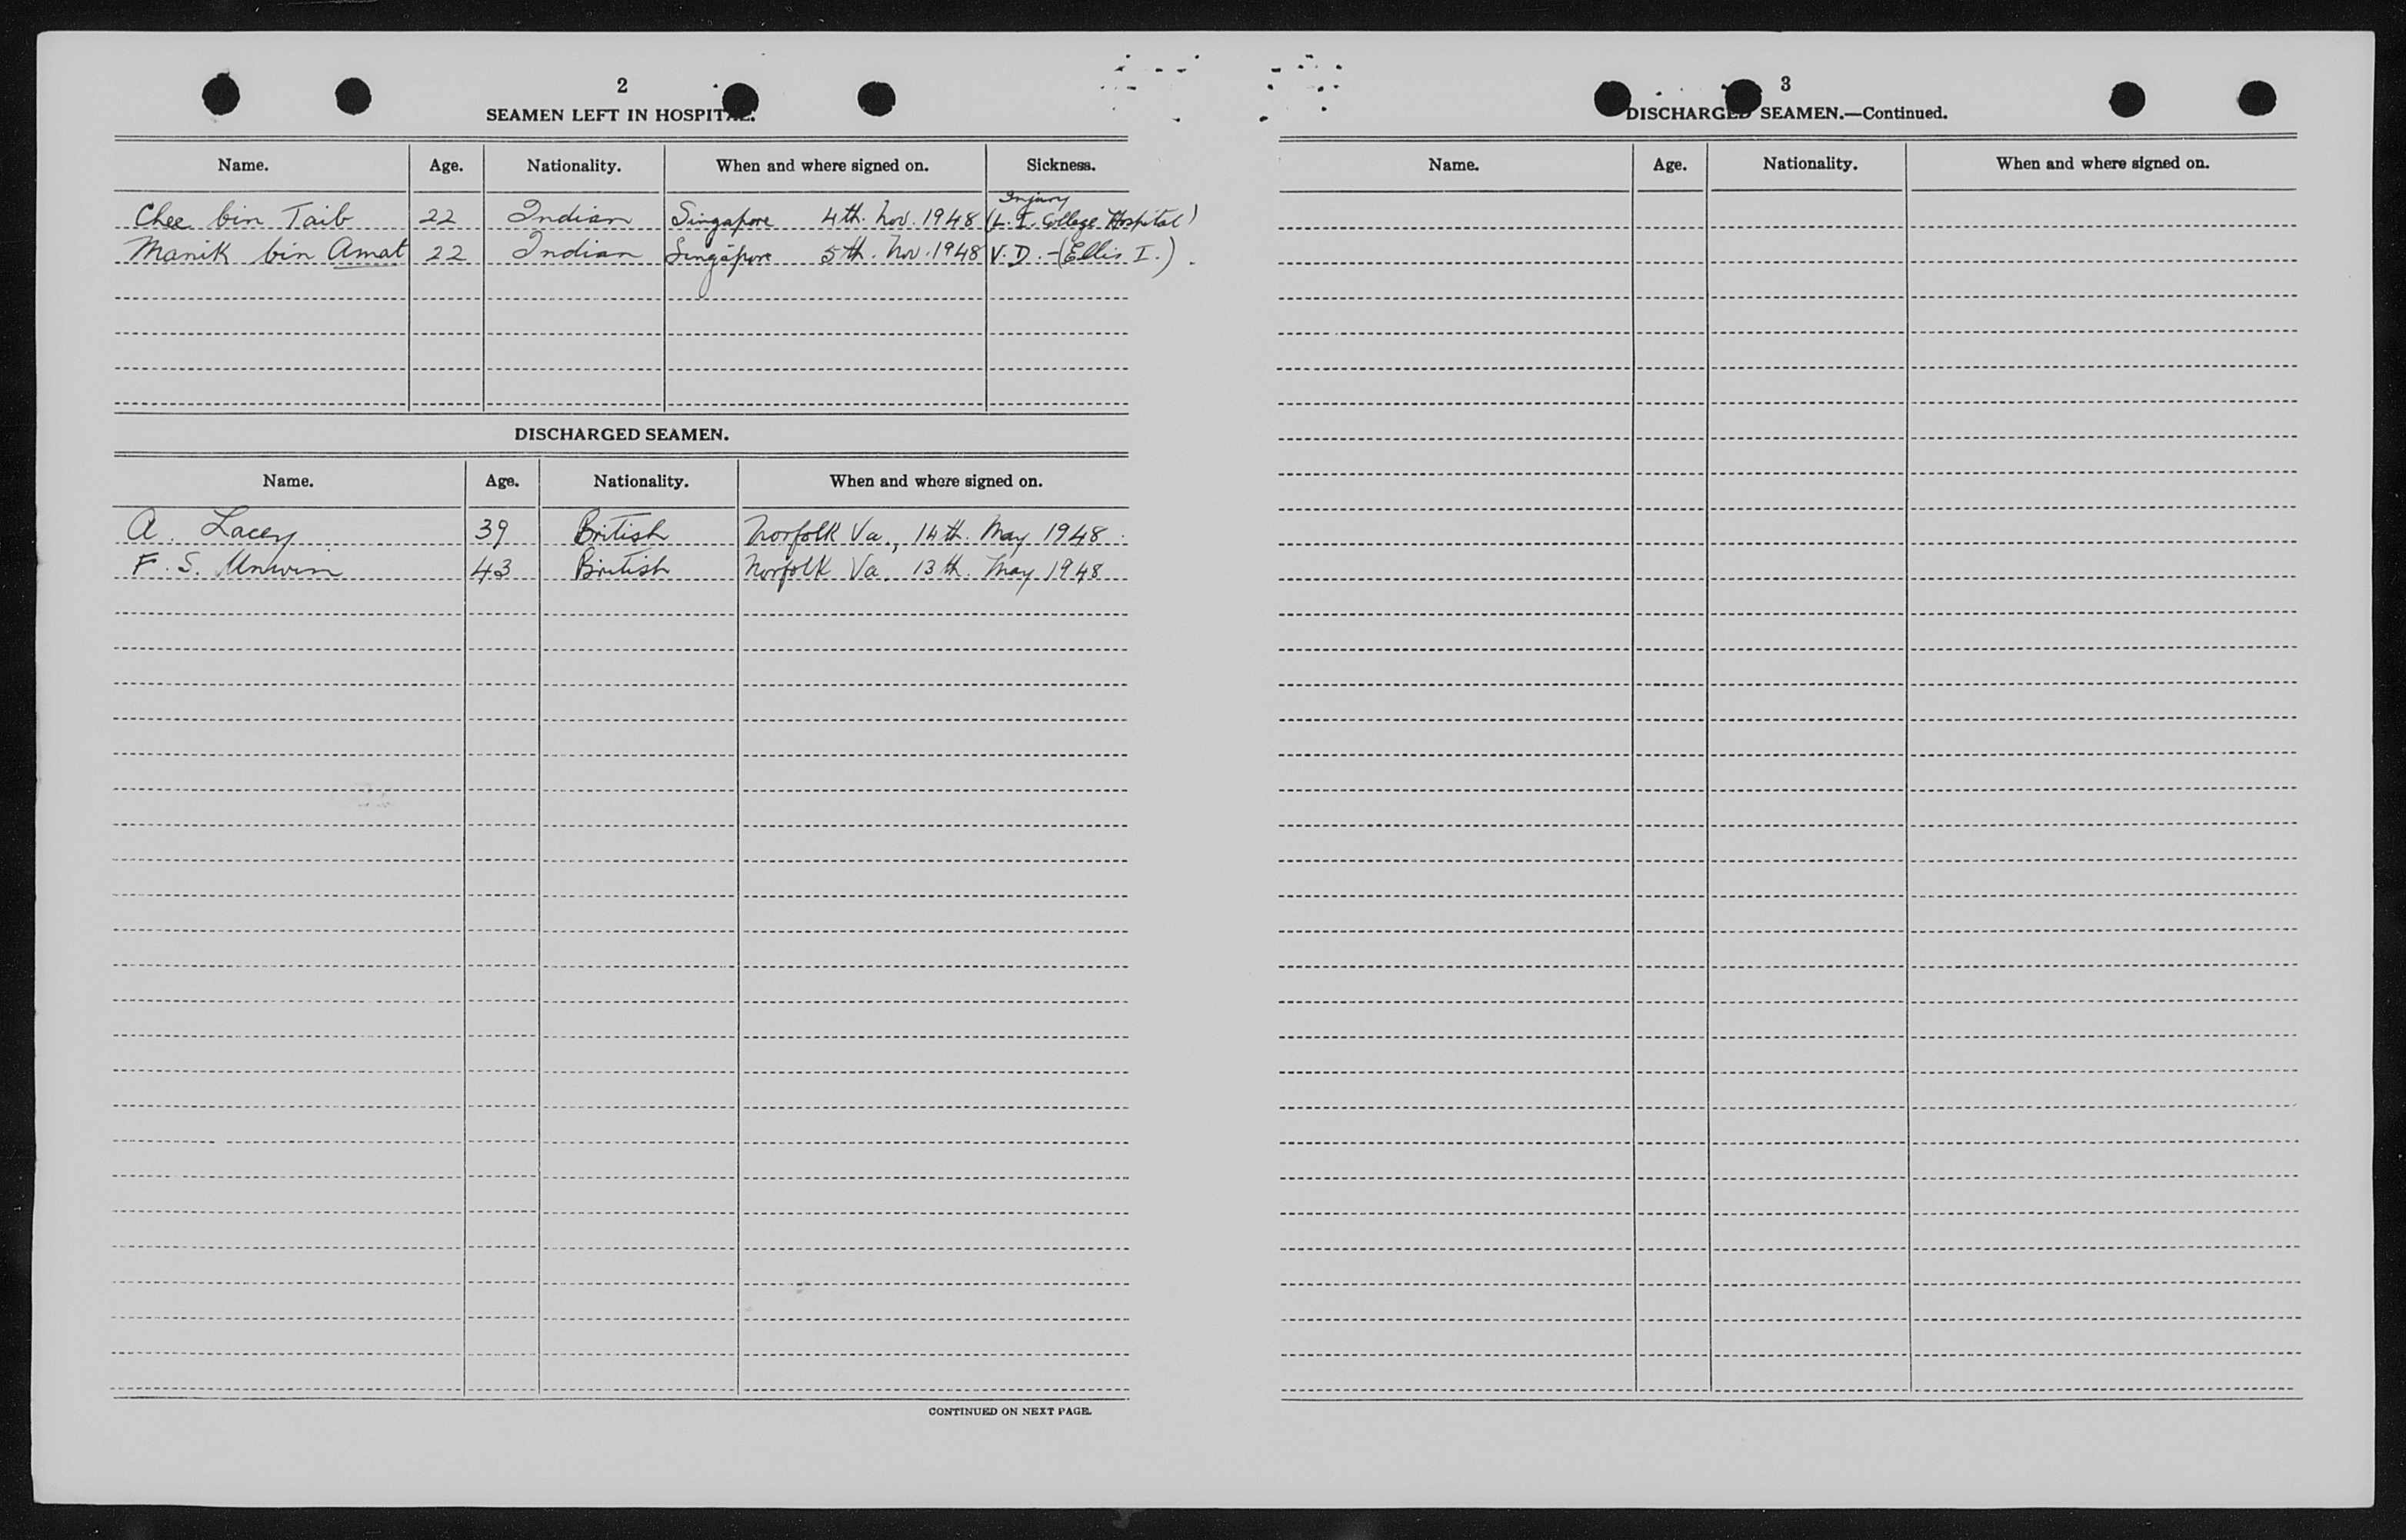 2
SEAMEN LEFT IN HOSPITAL.
Name. Age. Nationality. When and where signed on. Sickness.
Injury
Chee bin Taib 22 Indian Singapore 4th. Nov. 1948 (L. I. College Hospital)
Manik bin Amat 22 Indian Singapore 5th. Nov. 1948 V. D. - (Ellis I.).
DISCHARGED SEAMEN.
Name. Age. Nationality. When and where signed on.
A. Lacey 39 British Norfolk Va., 14th. May 1948.
F. S. Unwin 43 British Norfolk Va. 13th. May 1948
CONTINUED ON NEXT PAGE.
3
DISCHARGED SEAMEN.—Continued.
Name. Age. Nationality. When and where signed on.